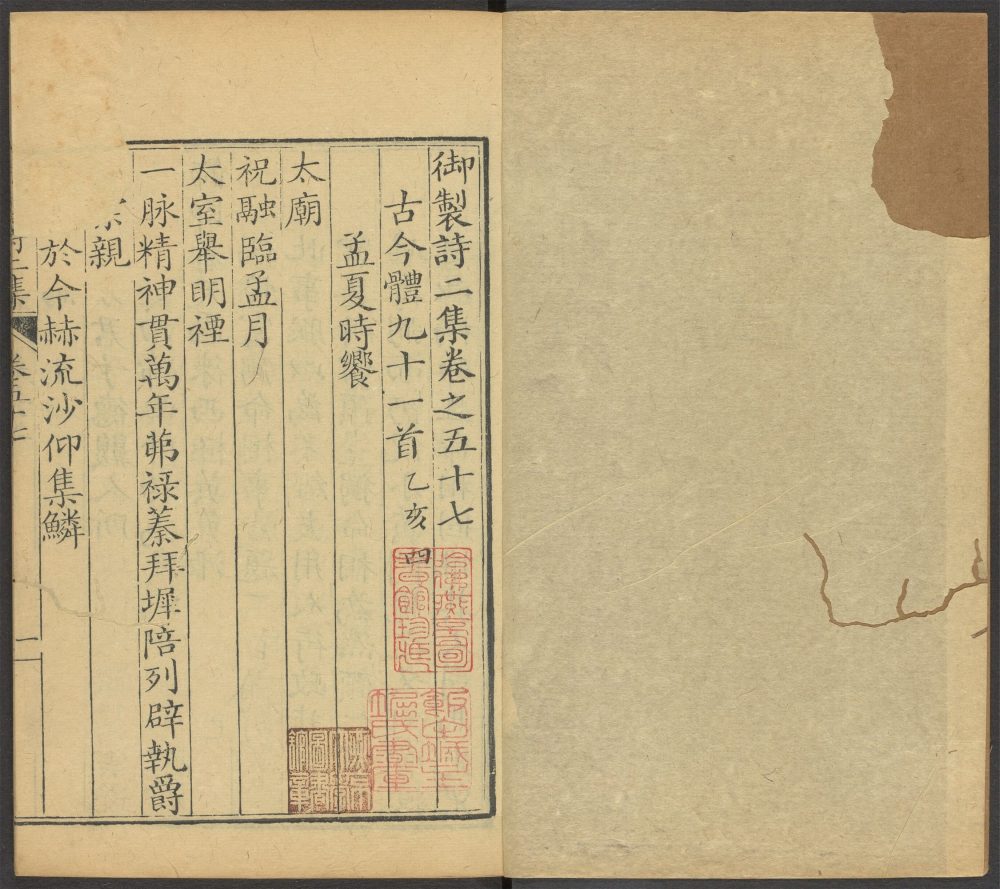 御製詩二集卷之五十七
古今體九十一首乙亥四
孟夏時饗
太廟
祝融臨孟月
太室舉明禋
一脉精神貫萬年茀禄蓁拜墀陪列辟執爵
親
於今赫流沙仰集鱗
二集
卷五十七
一